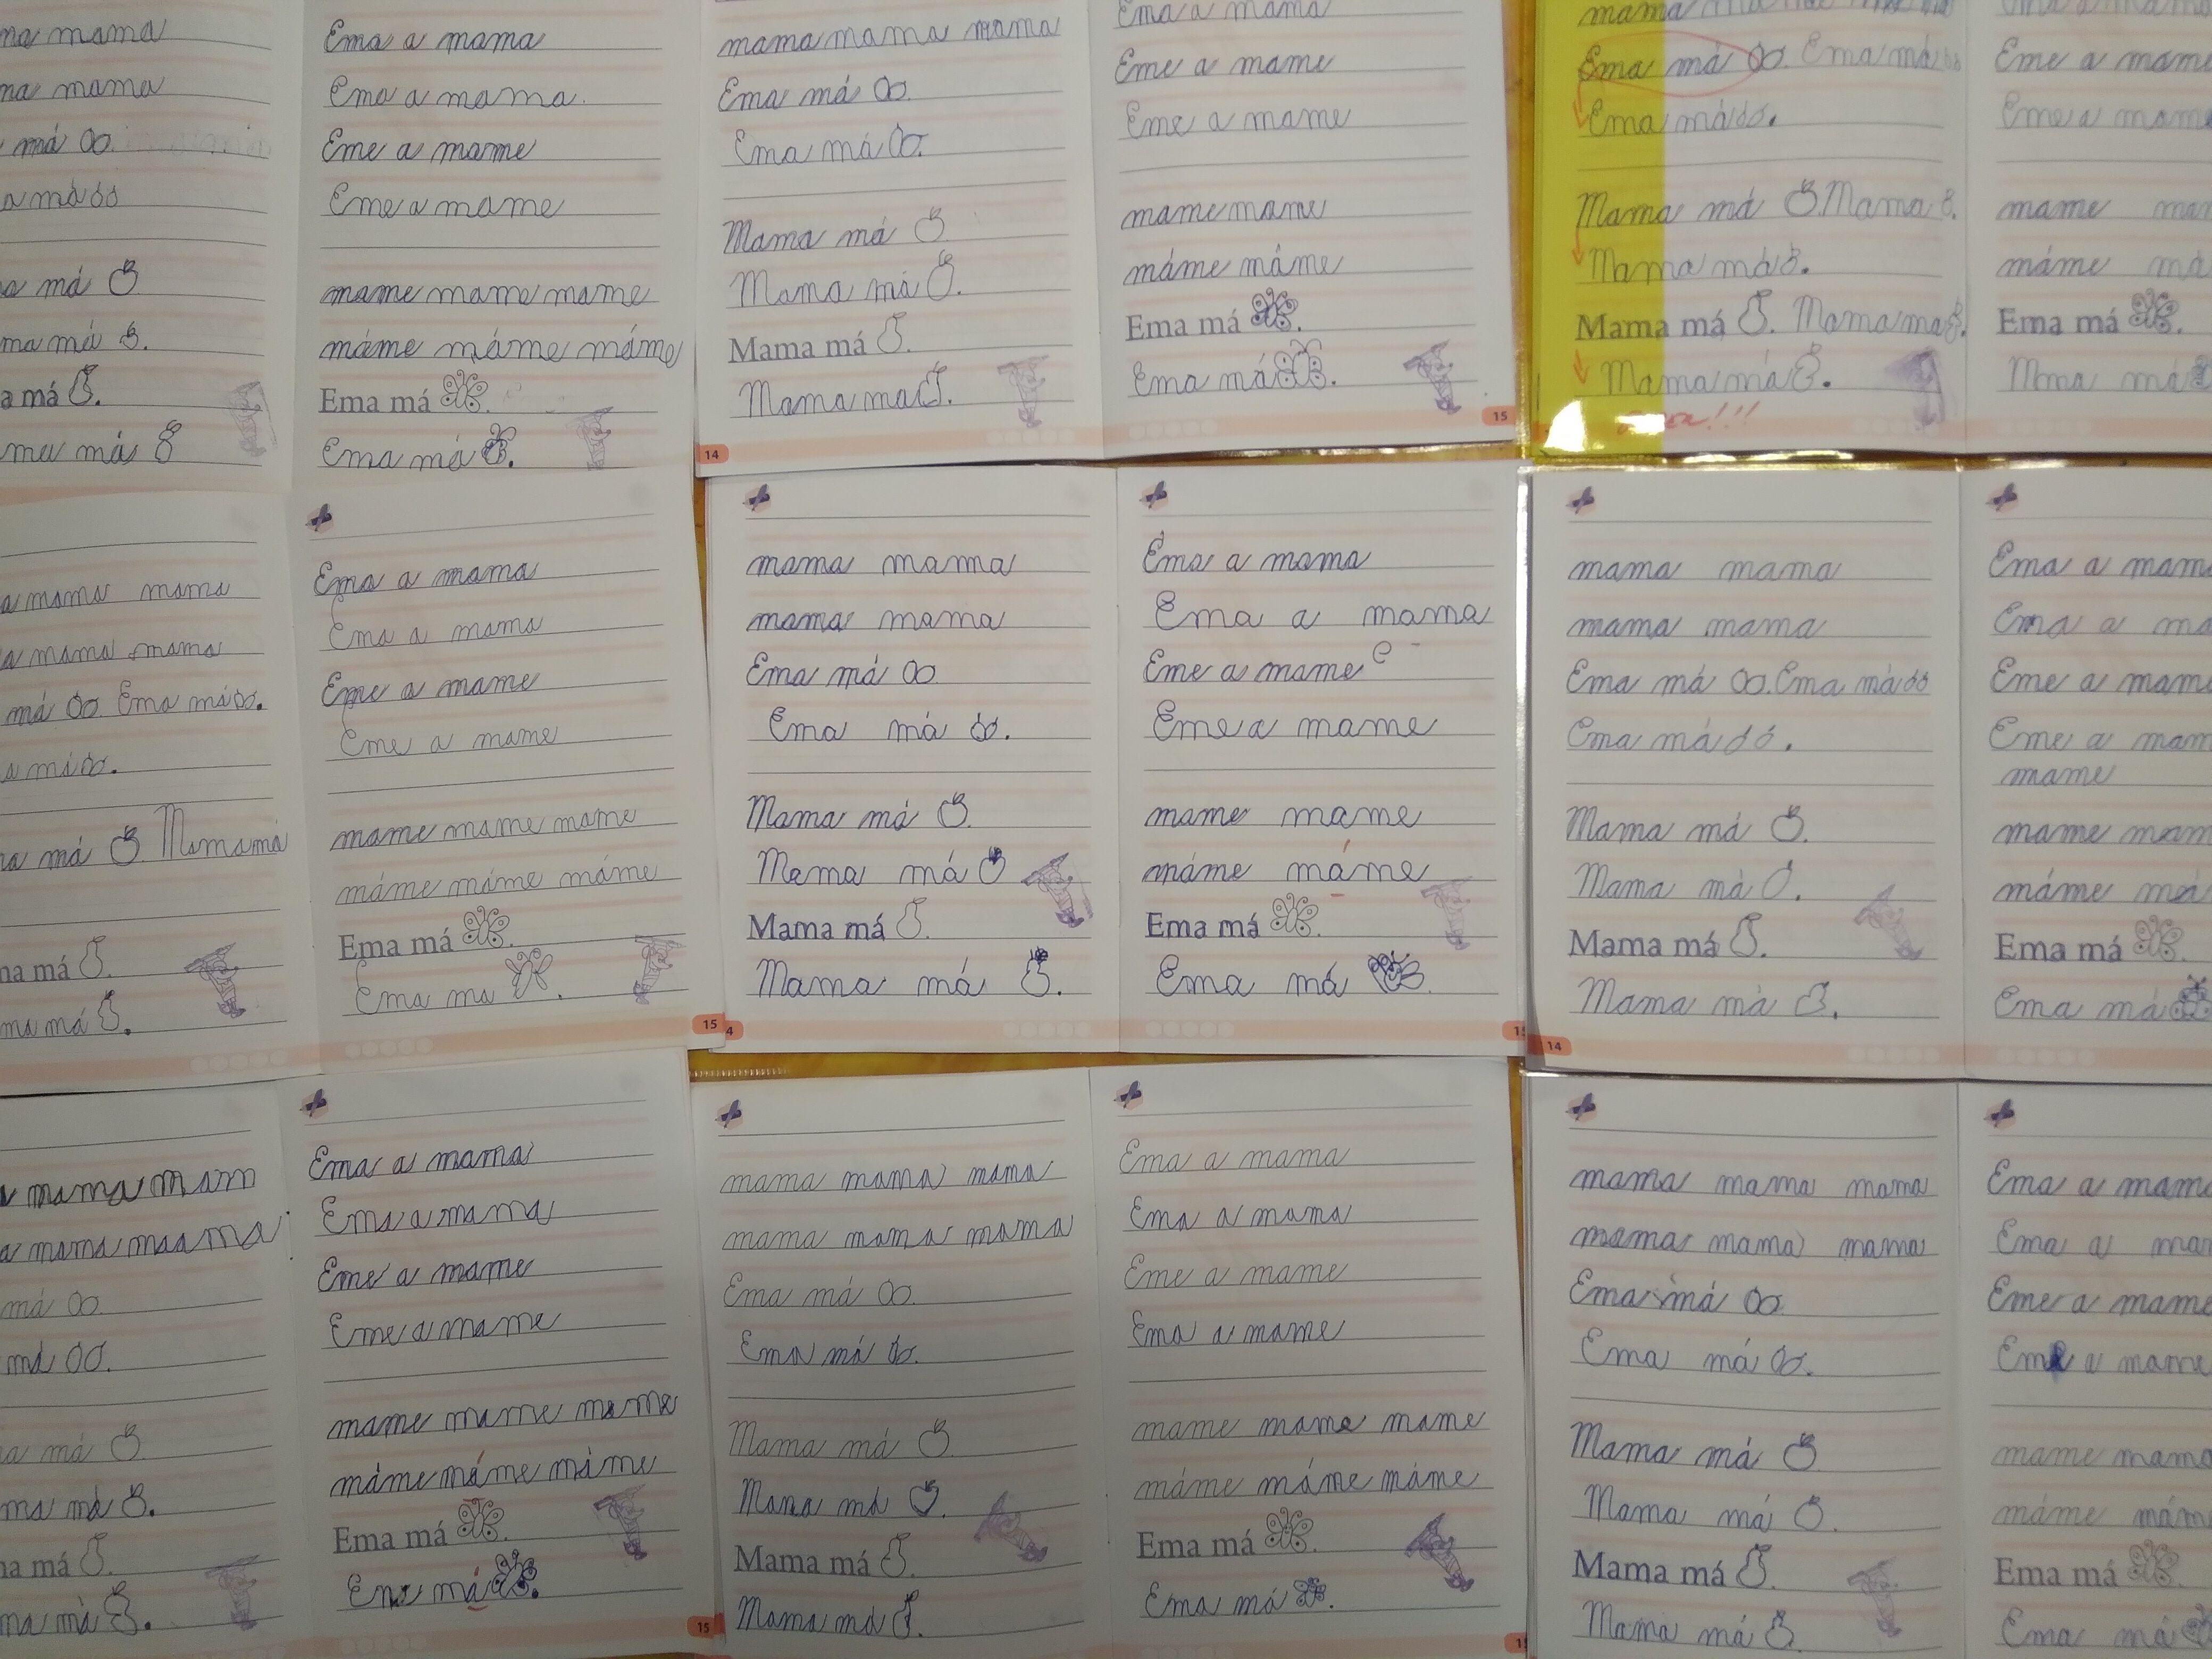 mama
mama
má
má
má
má
má
má
Ema a mama
Ema a mama.
Eme a mame
Eme a mame
mame mame mame
máme máme máme
Ema má .
Ema má .
mama mama mama
Ema má .
Ema má .
Mama má
Mama má .
Mama má .
Mama ma .
14
Ema a mama
Eme a mame
Eme a mame
mame mame
máme máme
Ema má .
Ema má .
15
mama
Ema má . Ema má
Ema má .
Mama má . Mama .
Mama má .
Mama má . Mama ma .
Mama má .
Eme a mame
Eme a mame
mame
máme
Ema má .
má
mama mama
mama mama
má . Ema má .
má .
má Mama má
má .
má .
Ema a mama
Ema a mama
Eme a mame
Eme a mame
mame mame mame
máme máme máme
Ema má .
Ema ma .
15
mama mama
mama mama
Ema má
Ema má .
Mama má .
Mama má
Mama má .
Mama má .
4
Ema a mama
Ema a mama
Eme a mame e
Eme a mame
mame mame
máme máme
Ema má .
Ema má .
mama mama
mama mama
Ema má . Ema má
Ema má .
Mama má .
Mama má .
Mama má .
Mama má .
14
Ema a
Ema a
Eme a
Eme a
mame
mame
máme
Ema má
Ema má
mama mam
mama maama
má .
má .
má .
má .
má .
má .
Ema a mama
Ema a mama
Eme a mame
Eme a mame
mame mame mame
máme máme máme
Ema má .
má .
15
mama mama mama
mama mama mama
Ema má .
Ema má .
Mama má .
Mama má .
Mama má .
Mama má .
Ema a mama
Ema a mama
Eme a mame
Ema a mame
mame mame mame
máme máme máme
Ema má .
Ema má .
mama mama mama
mama mama mama
Ema má
Ema má .
Mama má
Mama má .
Mama má .
Mama má .
Ema a mama
Ema a
Eme a mame
a mame
mame
máme
Ema má
Ema má